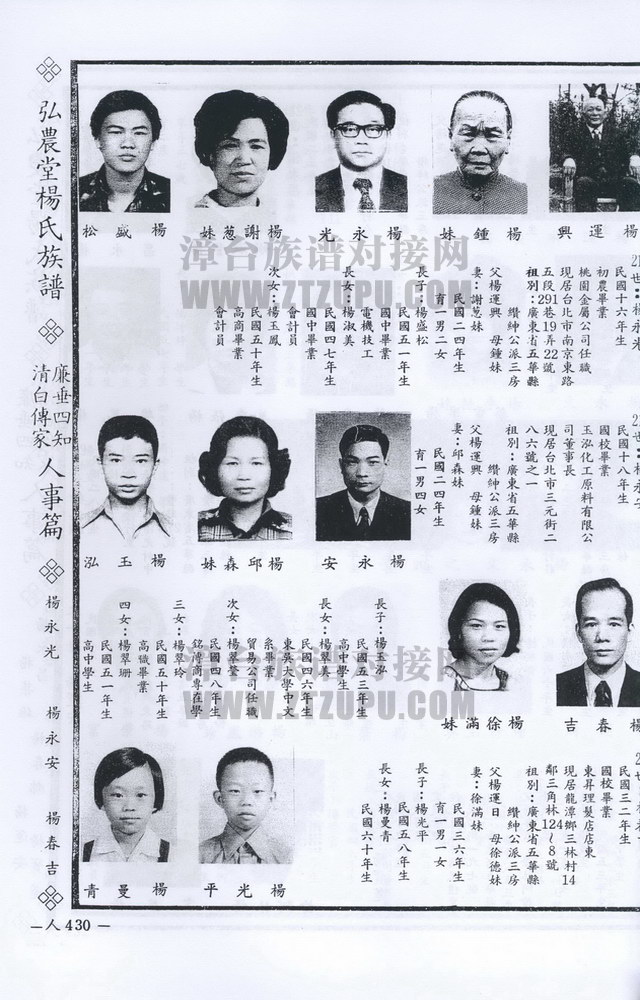 弘農堂楊氏族譜
廉垂四知
清白傳家
人事篇
楊永光
楊永安
楊春吉
—人430—
楊運興
楊鍾妹
楊永光
楊謝葱妹
楊盛松
民國十六年生
初農畢業
桃園金屬公司任職
現居台北市南京東路
五段291巷19弄22號
祖別：廣東省五華縣
纘紳公派三房
父楊運興 母鍾妹
妻：謝葱妹
民國二四年生
育一男二女
長子：楊盛松
民國五一年生
國中畢業
電機技工
長女：楊淑美
民國四七年生
國中畢業
會計員
次女：楊玉鳳
民國五十年生
高商畢業
會計員
楊永安
楊邱森妹
楊玉泓
民國十八年生
國校畢業
玉泓化工原料有限公
司董事長
現居台北市三元街二
八六號之一
祖別：廣東省五華縣
纘紳公派三房
父楊運興 母鍾妹
妻：邱森妹
民國二四年生
育一男四女
長子：楊玉泓
民國五三年生
高中學生
長女：楊翠美
民國四六年生
東吳大學中文
系畢業
貿易公司任職
次女：楊翠瑩
民國四八年生
銘傳商專在學
三女：楊翠玲
民國五十年生
高職畢業
四女：楊翠珊
民國五一年生
高中學生
楊春吉
楊徐滿妹
民國三二年生
國校畢業
東昇理髮店店東
現居龍潭鄉三林村14
鄰三角林124~8號
祖別：廣東省五華縣
纘紳公派三房
父楊運日 母徐德妹
妻：徐滿妹
民國三六年生
育一男一女
長子：楊光平
民國五八年生
長女：楊曼青
民國六十年生
楊光平
楊曼青
漳台族谱对接网
WWW.ZTZUPU.COM
漳台族谱对接网
WWW.ZTZUPU.COM